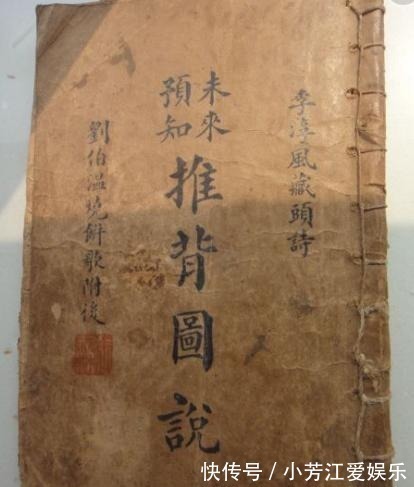 李淳風藏頭詩
未來
預知
推背圖說
劉伯溫燒餅歌附後
快传号／小芳江爱娱乐